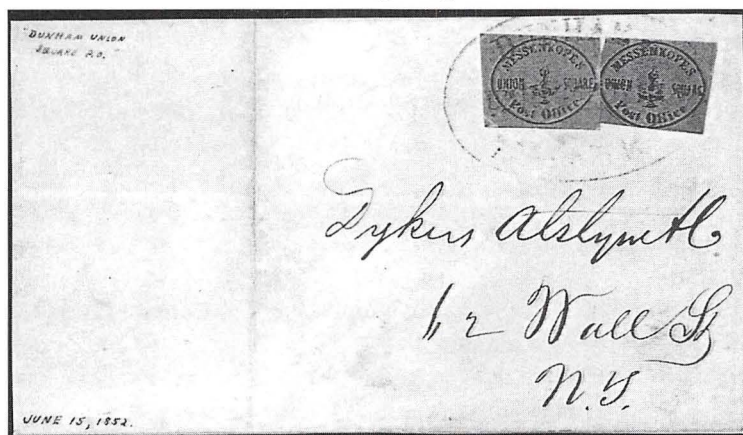 DUNHAM UNION
SQUARE P.O.
MESSENKOPES
UNION SQUARE
Post Office
MESSENKOPES
UNION SQUARE
Post Office
Dykers Alstyne & Co
62 Wall St
N.Y.
JUNE 15, 1852.